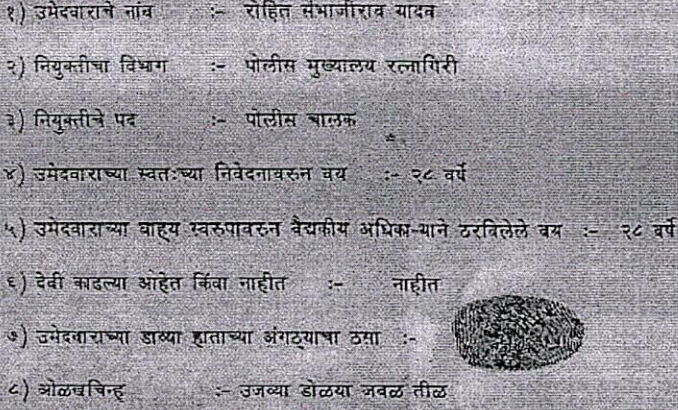 १) उमेदवाराचे नांव :- रोहित संभाजीराव यादव
२) नियुक्तीचा विभाग :- पोलीस मुख्यालय रत्नागिरी
३) नियुक्तीचे पद :- पोलीस चालक
४) उमेदवाराच्या स्वतःच्या निवेदनावरुन वय :- २८ वर्षे
५) उमेदवाराच्या बाहृय स्वरुपावरुन वैद्यकीय अधिका-याने ठरविलेले वय :- २८ वर्षे
६) देवी काढल्या आहेत किंवा नाहीत :- नाहीत
७) उमेदवाराच्या डाव्या हाताच्या अंगठ्याचा ठसा :-
८) ओळखचिन्ह :- उजव्या डोळया जवळ तीळ